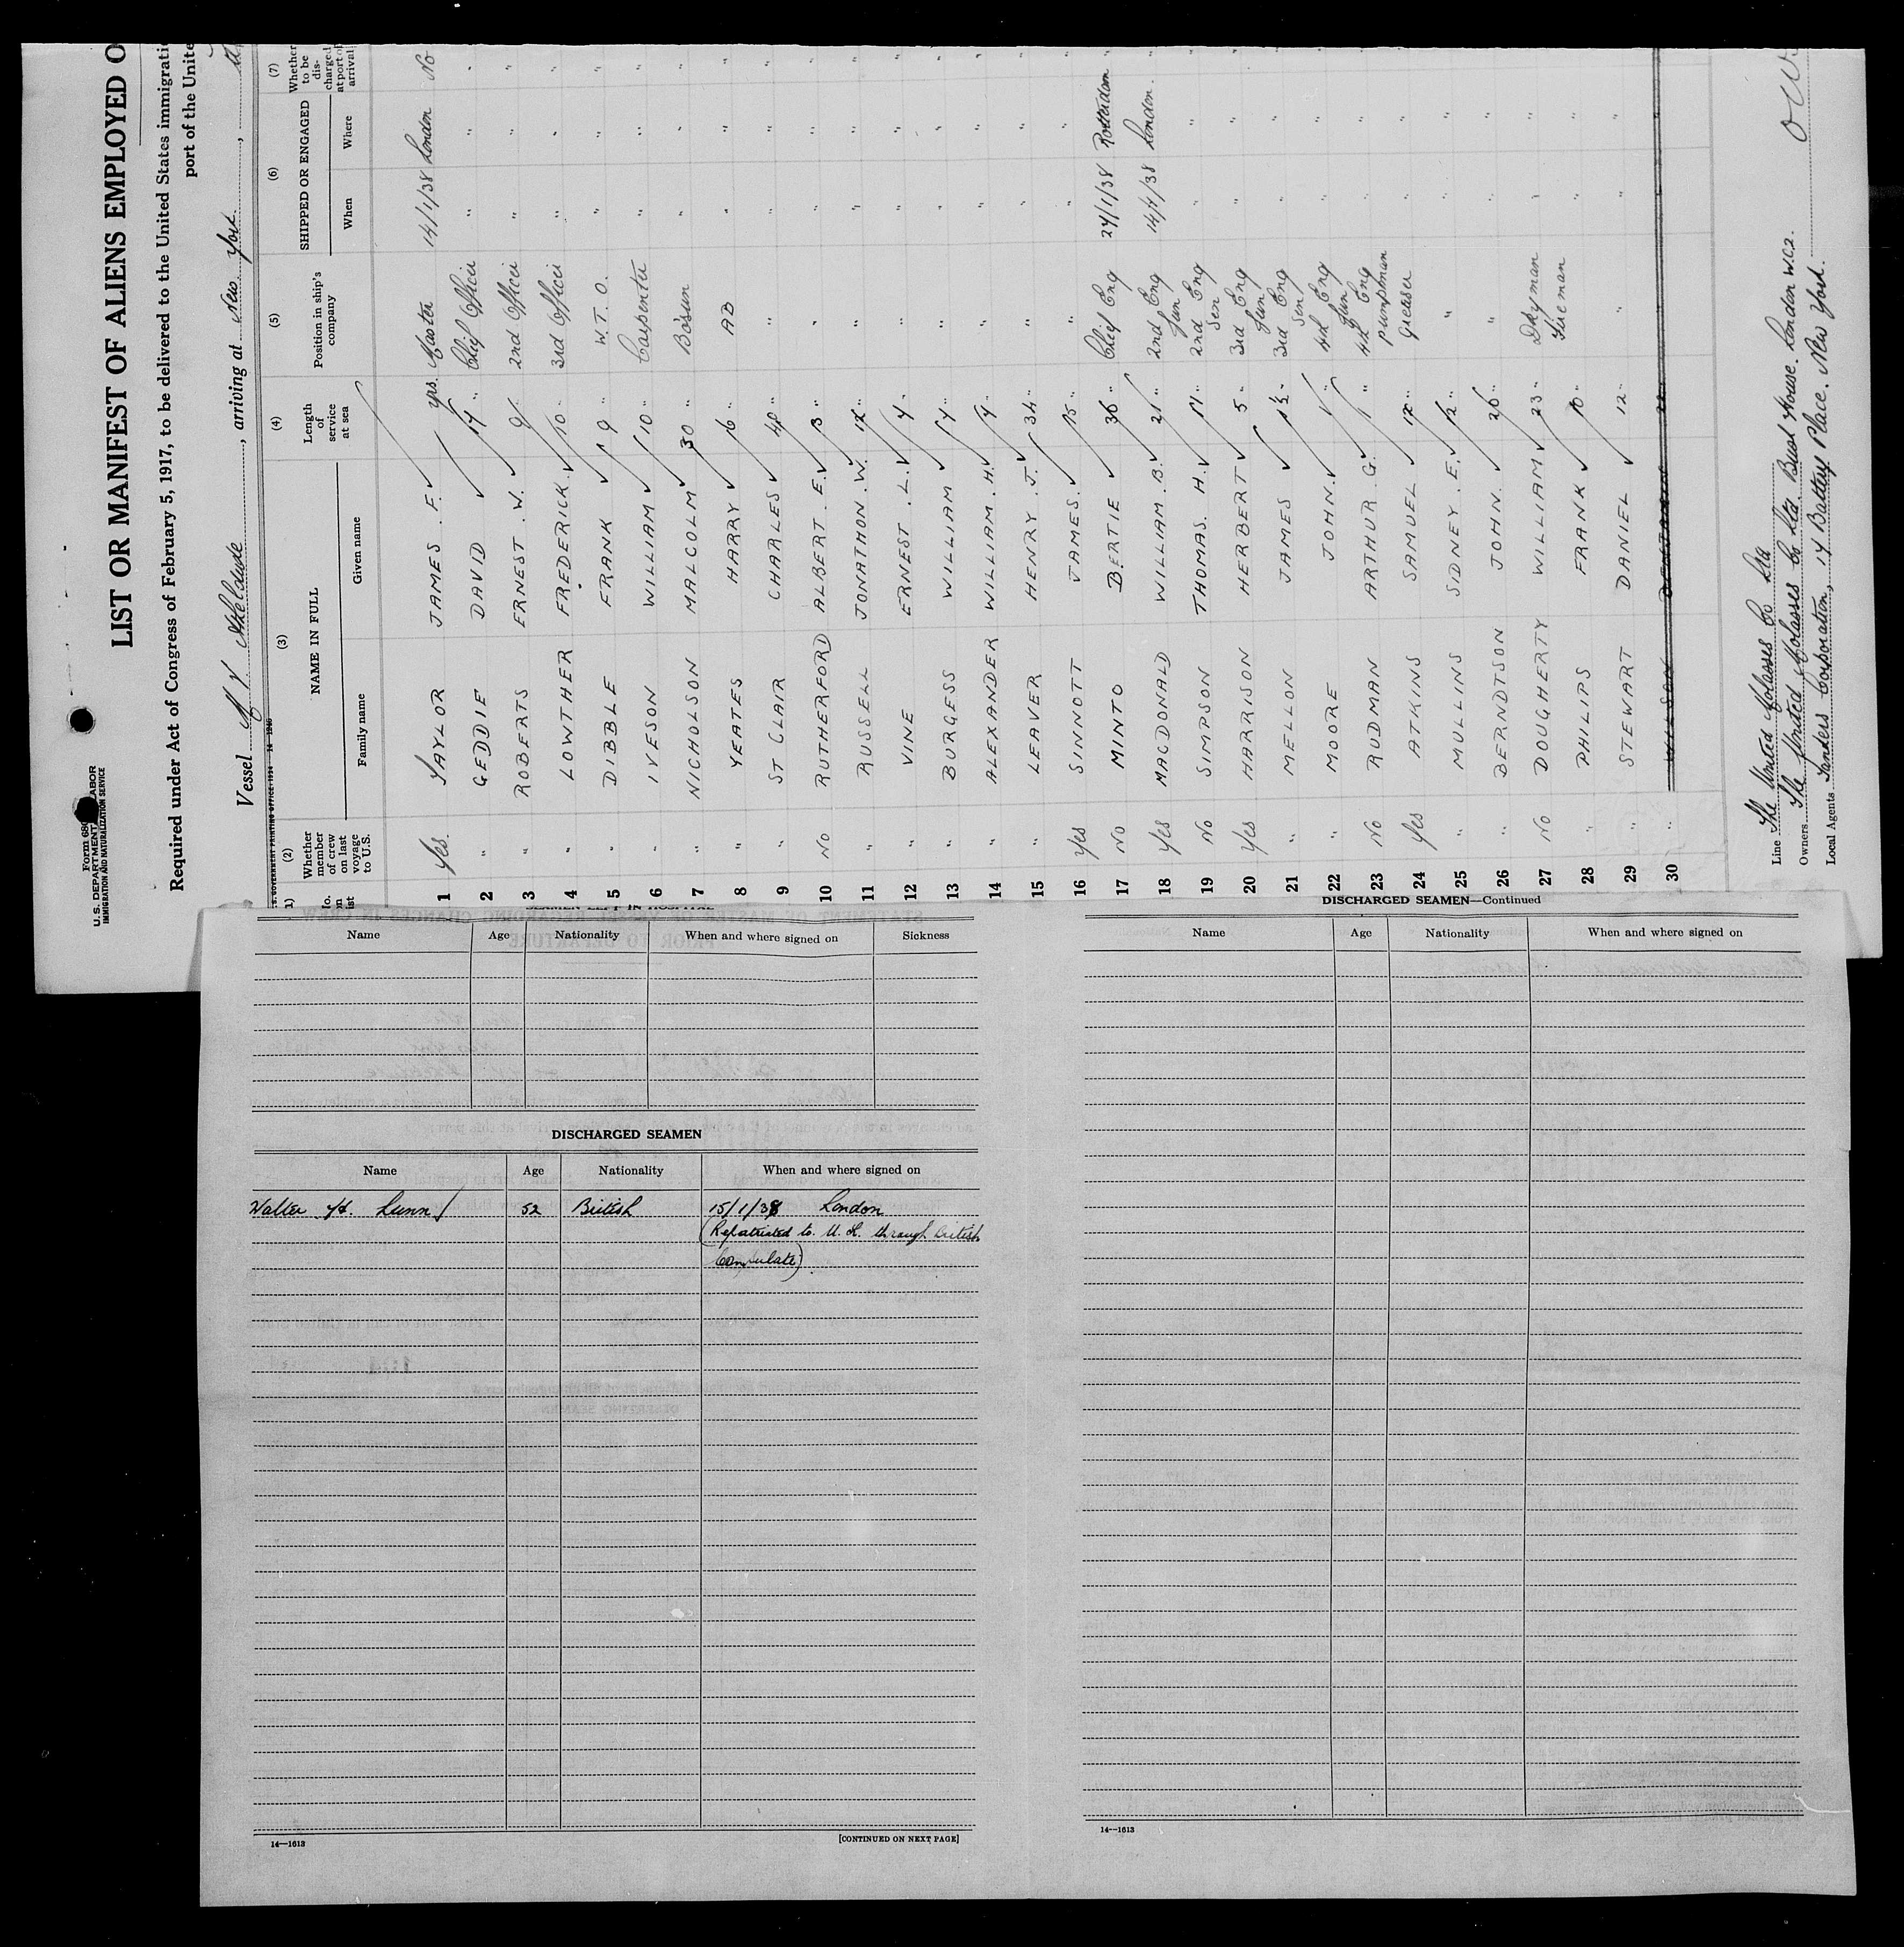 Form 680
U.S. DEPARTMENT LABOR
IMMIGRATION AND NATURALIZATION SERVICE
LIST OR MANIFEST OF ALIENS EMPLOYED O
Required under Act of Congress of February 5, 1917, to be delivered to the United States immigratio
port of the Unite
Vessel M V Athelclude, arriving at New York,
(2) (3) (4) (5) (6) (7)
Whether member of crew on last voyage to U.S. NAME IN FULL Length of service at sea Position in ship's company SHIPPED OR ENGAGED Whether to be discharged at port of arrival
Family name Given name When Where
1 Yes TAYLOR JAMES . F. yrs. Master 14/1/38 London No
2 " GEDDIE DAVID 17 " Chief Officer " " "
3 " ROBERTS ERNEST . W. 9 2nd Officer " " "
4 " LOWTHER FREDERICK . 10 " 3rd Officer " " "
5 " DIBBLE FRANK 9 " W. T. O. " " "
6 " IVESON WILLIAM 10 " Carpenter " " "
7 " NICHOLSON MALCOLM 30 " Bosun " " "
8 " YEATES HARRY 16 " AB " " "
9 " ST CLAIR CHARLES 48 " " " " "
10 No RUTHERFORD ALBERT . E. 13 " " " " "
11 " RUSSELL JONATHON . W. 12 " " " " "
12 " VINE ERNEST . L. 4 " " " " "
13 " BURGESS WILLIAM 14 " " " " "
14 " ALEXANDER WILLIAM . H. 4 " " " " "
15 " LEAVER HENRY . J. 34 " " " " "
16 Yes SINNOTT JAMES. 15 " " " " "
17 No MINTO BERTIE 36 " Chief Eng 24/1/38 Rotterdam "
18 Yes MACDONALD WILLIAM . B. 21 " 2nd Eng 14/1/38 London "
19 No SIMPSON THOMAS. H. 17 " Jun 2nd Eng " "
20 Yes HARRISON HERBERT 5 " Sen 3rd Eng " "
21 " MELLON JAMES 1½ " Jun 3rd Eng " "
22 " MOORE JOHN. 1 " Sen 4th Eng " "
23 No RUDMAN ARTHUR . G. 1 " Jun 4th Eng " "
24 Yes ATKINS SAMUEL 12 " Pumpman Greaser " "
25 " MULLINS SIDNEY . E. 12 " " " "
26 " BERNDTSON JOHN. 26 " " " "
27 No DOUGHERTY WILLIAM 23 " Dkyman " "
28 " PHILIPS FRANK 10 " Fireman " "
29 " STEWART DANIEL 12 " " " "
30 " WILSON
Line The United Molasses Co Ltd
Owners The United Molasses Co Ltd. Bush House. London W.C.2.
Local Agents Sanders Corporation, 14 Battery Place. New York.
SEAMEN LEFT IN HOSPITAL
Name Age Nationality When and where signed on Sickness
DISCHARGED SEAMEN
Name Age Nationality When and where signed on
Walter H. Lunn 52 British 15/1/38 London
(Repatriated to U. K. through British
Consulate)
14—1613 [CONTINUED ON NEXT PAGE]
DISCHARGED SEAMEN—Continued
Name Age Nationality When and where signed on
14—1613